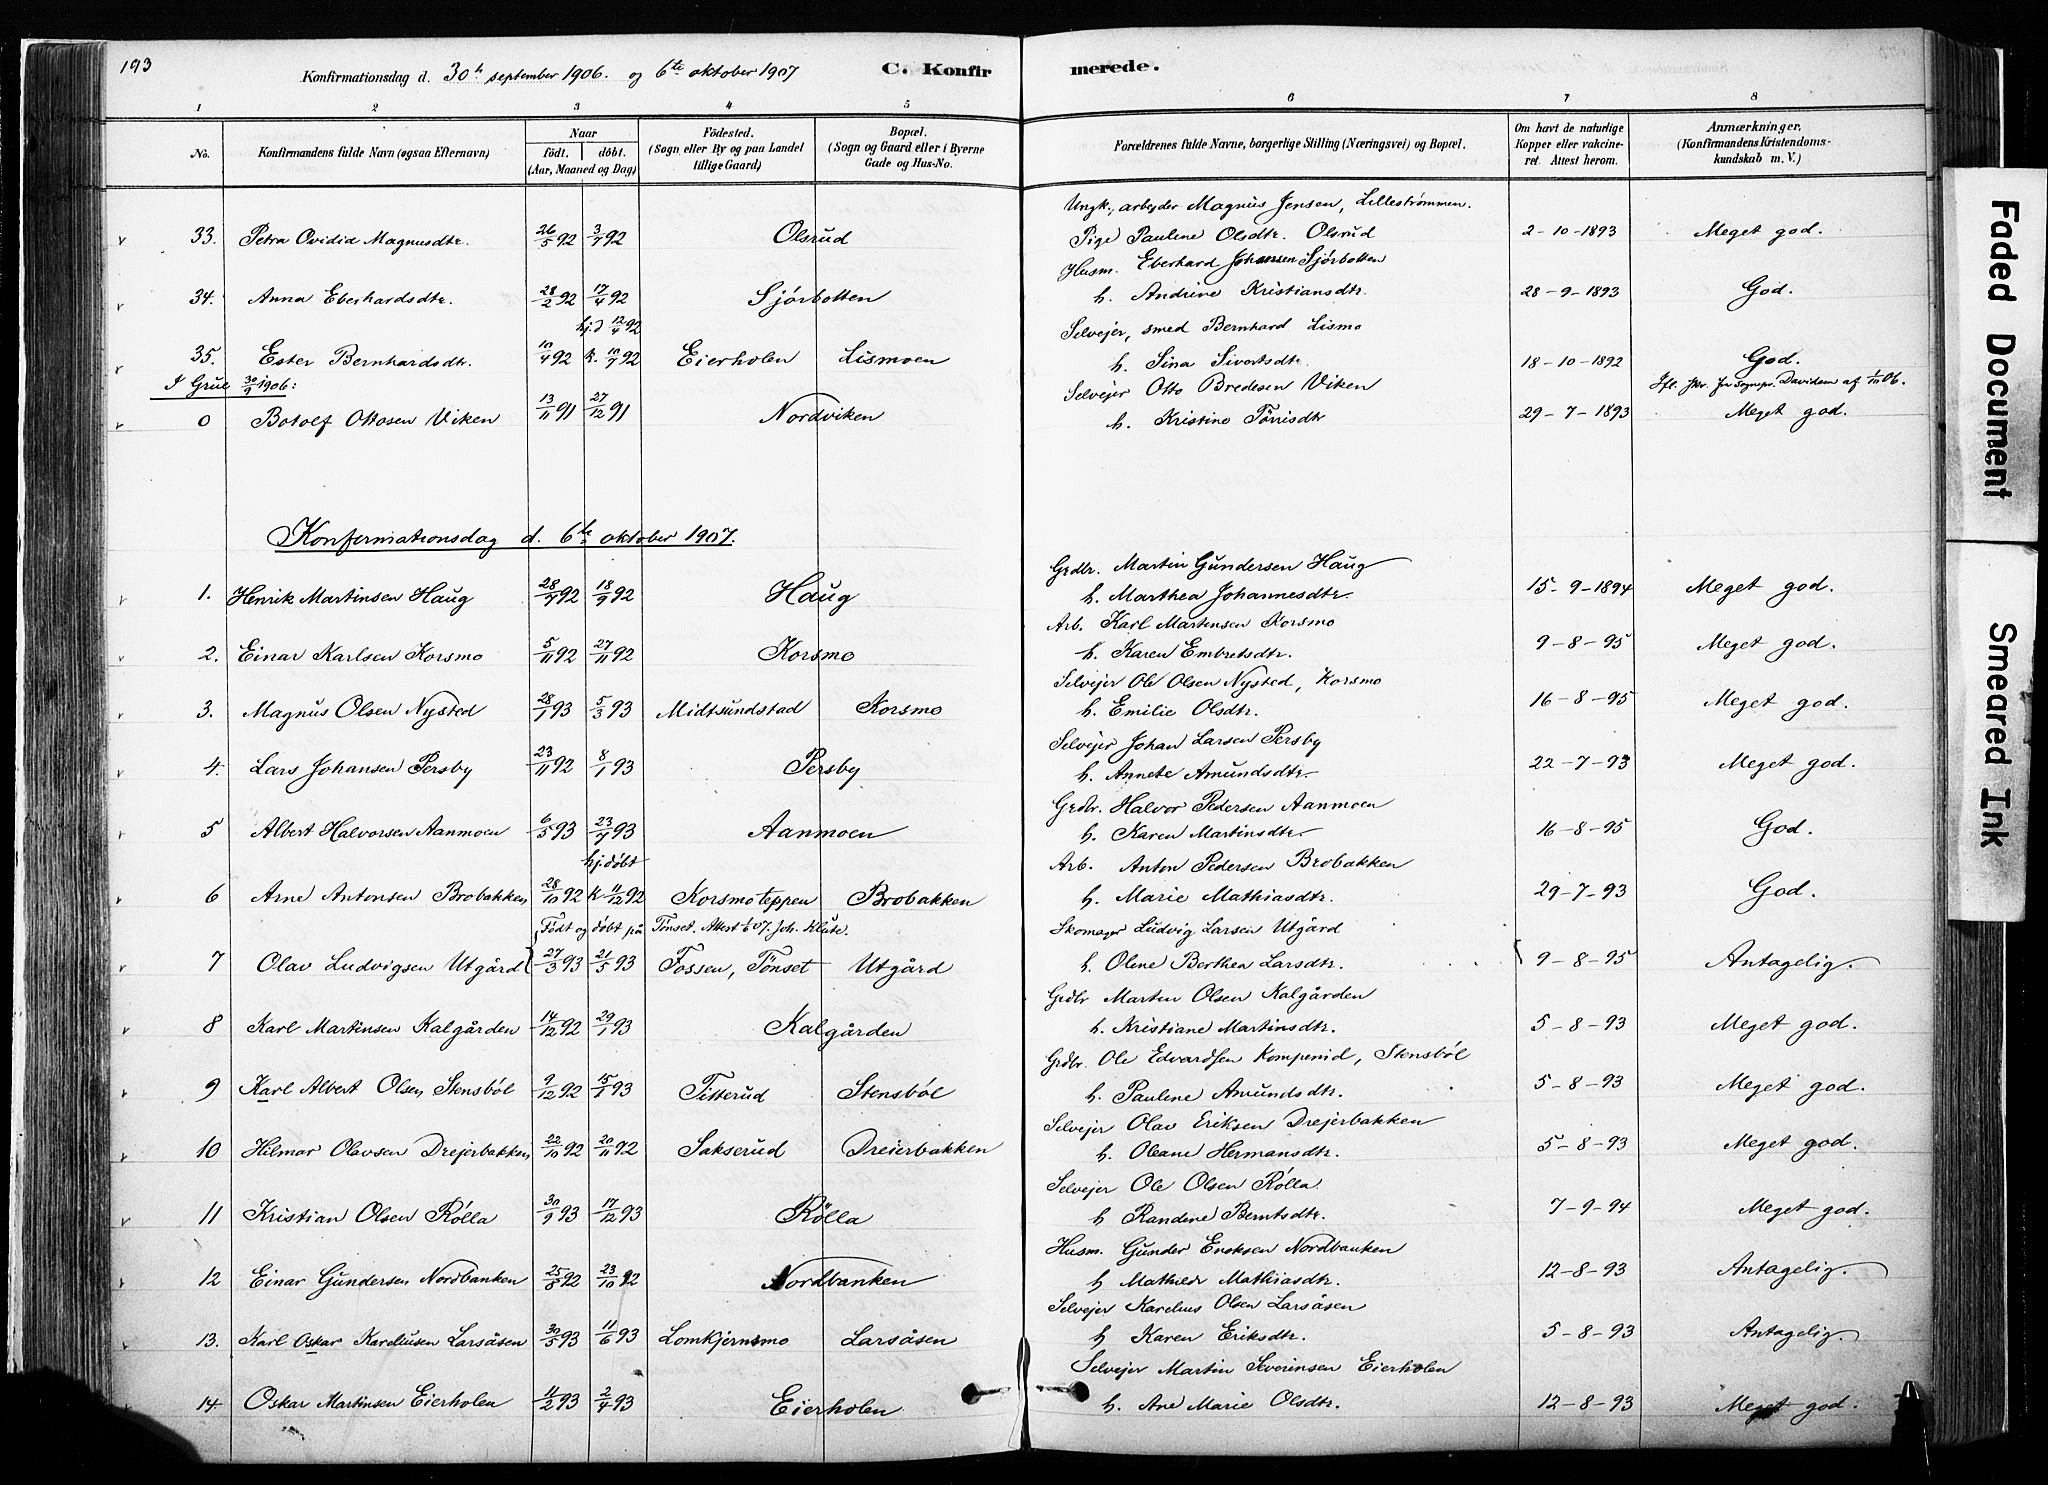 193
Konfirmationsdag d. 30te september 1906. og 6te oktober 1907
C. Konfirmerede.
1 2 3 4 5 6 7 8
No.
Konfirmandens fulde Navn (ogsaa Efternavn)
Naar
födt. döbt.
(Aar, Maaned og Dag)
Födested.
(Sogn eller By og paa Landet
tillige Gaard)
Bopæl.
(Sogn og Gaard eller i Byerne
Gade og Hus-No.
Forældrenes fulde Navne, borgerlige Stilling (Næringsvei) og Bopæl.
Om havt de naturlige
Kopper eller vakcine-
ret. Attest herom.
Anmærkninger.
(Konfirmandens Kristendoms-
kundskab m. V.)
Ungk., arbejder Magnus Jensen, Lillestrømmen.
33. Petra Ovidia Magnusdtr. 26/5 92 3/7 92 Olsrud Pige Paulene Olsdtr. Olsrud 2-10-1893 Meget god.
Husm. Eberhard Johansen Sjørbotten
34. Anna Eberhardsdtr. 28/2 92 17/4 92 Sjørbotten h. Andrine Kristiansdtr. 28-9-1893 God.
hj.d 12/4 92 Selvejer, smed Bernhard Lismo
35. Ester Bernhardsdtr. 10/4 92 k. 10/7 92 Eierholen Lismoen h. Sina Sivertsdtr. 18-10-1892 God.
I Grue 30/9 1906: Selvejer Otto Bredesen Viken Davidsen af 1/11 06.
0 Botolf Ottosen Viken 13/11 91 27/12 91 Nordviken h. Kristine Tørrisdtr 29-7-1893 Meget god.
Konfermationsdag d. 6te oktober 1907.
Grdbr. Martin Gundersen Haug
1. Henrik Martinsen Haug 28/7 92 18/9 92 Haug h. Marthea Johannesdtr. 15-9-1894 Meget god.
Arb. Karl Martinsen Korsmo
2. Einar Karlsen Korsmo 5/11 92 27/11 92 Korsmo h. Karen Embretsdtr. 9-8-95 Meget god.
Selvejer Ole Olsen Nysted, Korsmo
3. Magnus Olsen Nysted 28/1 93 5/3 93 Midtsundstad Korsmo h. Emilie Olsdtr. 16-8-95 Meget god.
Selvejer Johan Larsen Persby
4. Lars Johansen Persby 23/11 92 8/1 93 Persby h. Annete Amundsdtr. 22-7-93 Meget god.
Grdbr. Halvor Pedersen Aanmoen
5 Albert Halvorsen Aanmoen 6/5 93 23/7 93 Aanmoen h. Karen Martinsdtr. 16-8-95 God.
hj.døbt Arb. Anton Pedersen Brobakken
6 Arne Antonsen Brobakken 28/10 92 k 11/12 92 Korsmoteppen Brobakken h. Marie Mathiasdtr. 29-7-93 God.
Født og døbt på Tønset. Attest 6 07. Joh. Klüte. Skomager Ludvig Larsen Utgård
7 Olav Ludvigsen Utgård 27/3 93 21/5 93 Fossen, Tønset Utgård h. Olene Berthea Larsdtr. 9-8-95 Antagelig.
Grdbr Martin Olsen Kalgården
8 Karl Martinsen Kalgården 14/12 92 29/1 93 Kalgården h. Kristiane Martinsdtr. 5-8-93 Meget god.
Grdbr. Ole Edvardsen Kompenid, Stensbøl
9 Karl Albert Olsen Stensbøl 9/12 92 15/1 93 Titterud Stensbøl h. Paulene Amundsdtr. 5-8-93 Meget god.
Selvejer Olav Eriksen Drejerbakken
10 Hilmar Olavsen Drejerbakken 22/10 92 20/11 92 Sakserud Dreierbakken h. Oleane Hermansdtr. 5-8-93 Meget god.
Selvejer Ole Olsen Rølla
11 Kristian Olsen Rølla 30/9 93 17/12 93 Rølla h Randene Berntsdtr. 7-9-94 Meget god.
Husm. Gunder Ericksen Nordbanken
12 Einar Gundersen Nordbanken 25/8 92 23/10 92 Nordbanken h Mathilde Mathiasdtr. 12-8-93 Antagelig.
Selvejer Karelius Olsen Larsåsen
13. Karl Oskar Kareliusen Larsåsen 30/5 93 11/6 93 Lomkjernsmo Larsåsen h Karen Eriksdtr. 5-8-93 Antagelig.
Selvejer Martin Severinsen Eierholen
14. Oskar Martinsen Eierholen 11/2 93 2/4 93 Eierholen h. Ane Marie Olsdtr. 12-8-93 Meget god.
Faded Document
Smeared Ink